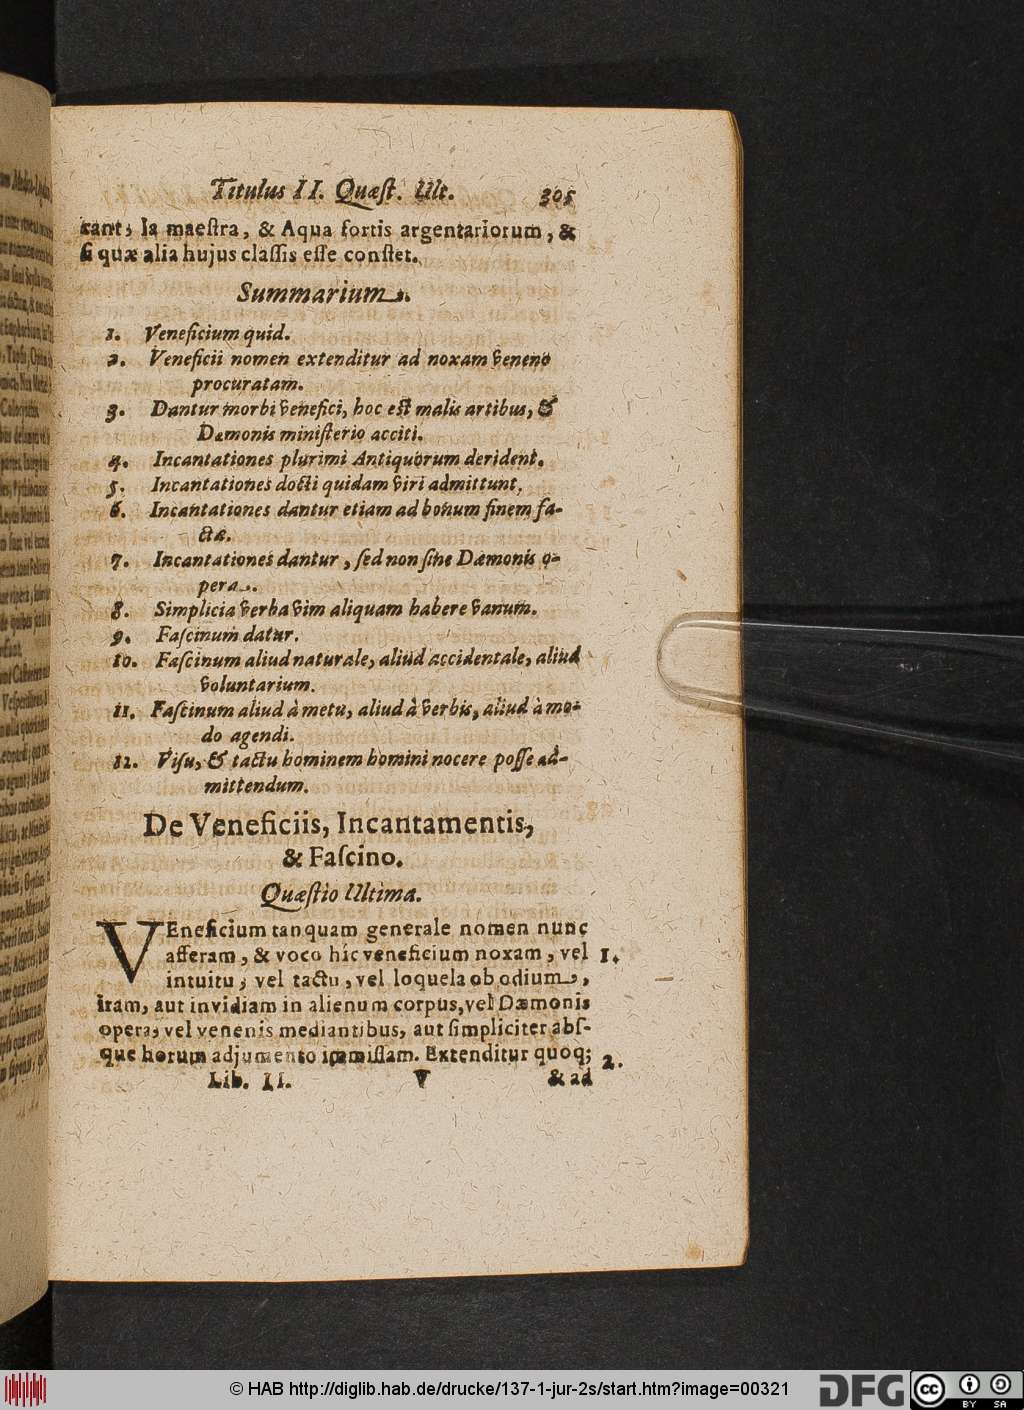 Titulus II. Quæſt. Ult. 305
cant; la maeſtra, & Aqua fortis argentariorum, &
ſi quæ alia hujus claſſis eſſe conſtet.
Summarium.
1. Veneficium quid.
2. Veneficii nomen extenditur ad noxam veneno
procuratam.
3. Dantur morbi venefici, hoc eſt malis artibus, &
Dæmonis miniſterio acciti.
4. Incantationes plurimi Antiquorum derident.
5. Incantationes docti quidam viri admittunt.
6. Incantationes dantur etiam ad bonum finem fa-
ctæ.
7. Incantationes dantur, ſed non ſine Dæmonis o-
pera.
8. Simplicia verba vim aliquam habere vanum.
9. Faſcinum datur.
10. Faſcinum aliud naturale, aliud accidentale, aliud
voluntarium.
11. Faſcinum aliud à metu, aliud à verbis, aliud à mo-
do agendi.
12. Viſu, & tactu hominem homini nocere poſſe ad-
mittendum.
De Veneficiis, Incantamentis,
& Faſcino.
Quæſtio Ultima.
VEneficium tanquam generale nomen nunc
afferam, & voco hîc veneficium noxam, vel 1.
intuitu, vel tactu, vel loquela ob odium,
iram, aut invidiam in alienum corpus, vel Dæmonis
opera, vel venenis mediantibus, aut ſimpliciter abſ-
que horum adjumento immiſſam. Extenditur quoq; 2.
Lib. II. V & ad
© HAB http://diglib.hab.de/drucke/137-1-jur-2s/start.htm?image=00321
DFG
cc BY SA